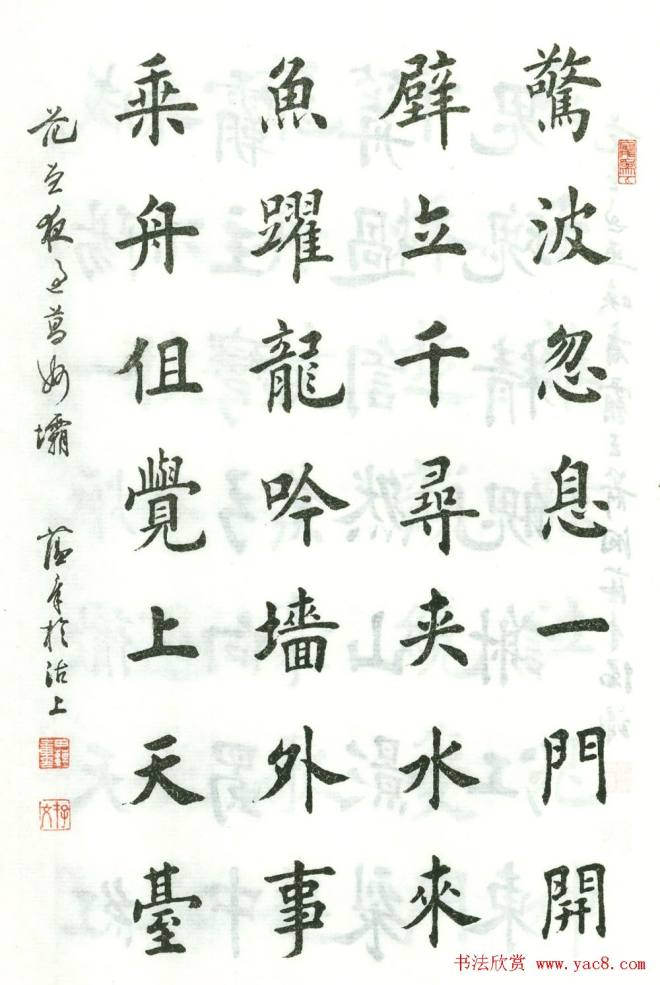 驚波忽息一門開
壁立千尋夾水來
魚躍龍吟墻外事
乘舟但覺上天臺
范曾夜過葛洲壩
於沽上
书法欣赏 www.yac8.com